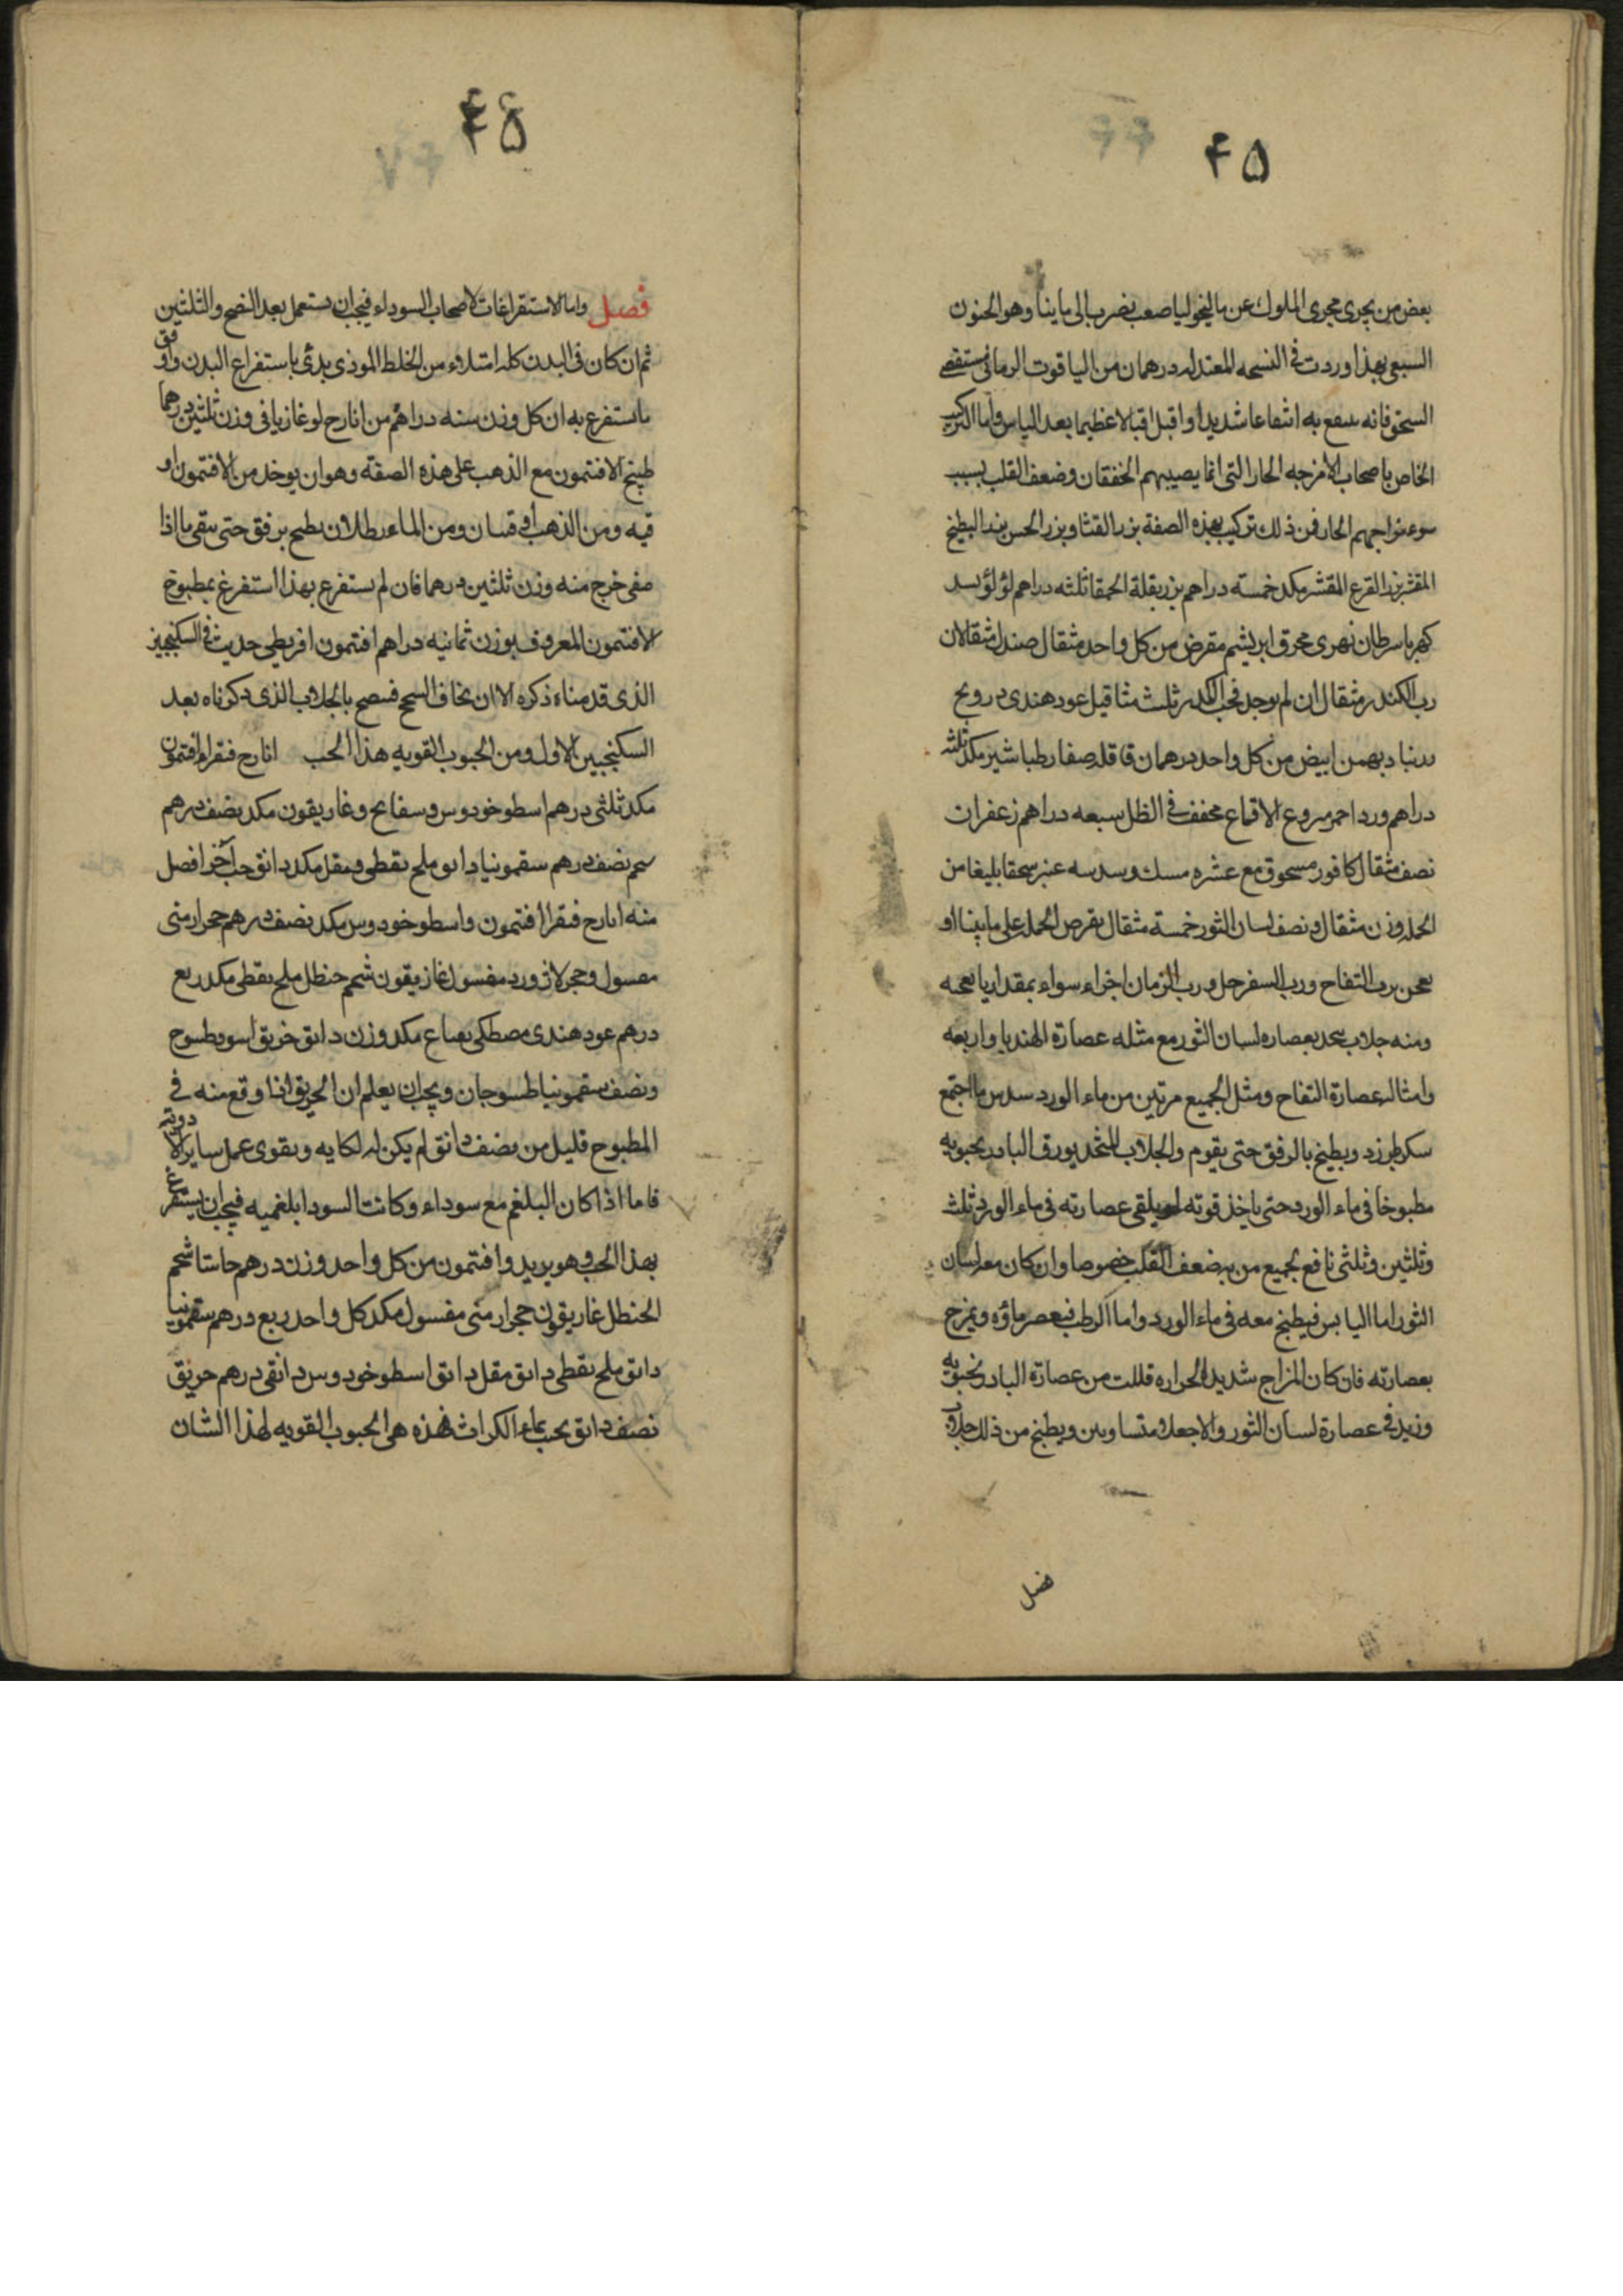 ۴۵
بعض من يجرى مجرى الملوك عن ماليخوليا صعب يضرب الى مانيا وهو الجنون
السبعى بهذا وردت فى النسخه المعتدله درهمان من الياقوت الرمانى مستقصى
السحق فانه ينتفع به انتفاعا شديدا واقبل اقبالا عظيما بعد الياس واما التركيب
الخاص باصحاب الامزجه الحاره التى انما يصيبهم الخفقان وضعف القلب بسبب
سوء مزاجهم الحار فمن ذلك تركيب بهذه الصفة بزر القثا وبزر الخس بزر البطيخ
المقشر بزر القرع المقشر مكد خمسته دراهم بزر بقلة الحمقا ثلثه دراهم لؤلؤ بسد
كهربا سرطان نهرى محرق ابريشم مقرض من كل واحد مثقال صندل مثقالان
رب الكندر مثقال ان لم يوجد فحب الكندر ثلث مثاقيل عود هندى درونج
زرنباد بهمن ابيض من كل واحد درهمان قاقله صغار طباشير مكد ثلثه
دراهم ورد احمر منزوع الاقماع مجفف فى الظل سبعه دراهم زعفران
نصف مثقال كافور مسحوق مع عشره مسك وسدسه عنبر سحقا بليغا من
الجمله وزن مثقال ونصف لسان الثور خمسة مثقال يقرص الجمله على ما بينا او
يعجن برب التفاح ورب السفرجل ورب الرمان اجزاء سواء بمقدار ما يعجنه
ومنه جلاب يتخذ بعصاره لسان الثور مع مثله عصارة الهندبا واربعه
وامثاله عصارة التفاح ومثل الجميع مرتين من ماء الورد سدس ما اجتمع
سكر طبرزد ويطبخ بالرفق حتى يقوم والجلاب المتخذ بورق البادرنجبويه
مطبوخا فى ماء الورد حتى ياخذ قوته او يلقى عصارته فى ماء الورد ثلث
وثلثين وثلثى نافع لجميع من به ضعف القلب خصوصا وان كان معه لسان
الثور اما اليابس فيطبخ معه فى ماء الورد واما الرطب فيعصر ماؤه ويمزج
بعصارته فان كان المزاج شديد الحراره قللت من عصارة البادرنجبويه
وزيد فى عصارة لسان الثور والا جعلا متساويين ويطبخ من ذلك جلاب
فصل
۴۶
فصل واما الاستفراغات لاصحاب السوداء فيجب ان يستعمل بعد النضج والتلتين
ثم ان كان فى البدن كله امتلاء من الخلط الموذى بدئ باستفراغ البدن واوفق
ما يستفرغ به ان كل وزن سته دراهم من ايارج لوغاذيا فى وزن ثلثين درهما
طبيخ الافتمون مع الذهب على هذه الصفة وهو ان يوخذ من الافتمون او
قيه ومن الذهب اوقيتان ومن الماء رطلان يطبخ برفق حتى يبقى ما اذا
صفى خرج منه وزن ثلثين درهما فان لم يستفرغ بهذا استفرغ بمطبوخ
الافتمون المعروف بوزن ثمانيه دراهم افتمون اقريطى حديث فى السكنجبين
الذى قدمناء ذكره الا ان يخاف السحج فيصح بالجلاب الذى ذكرناه بعد
السكنجبين الاول ومن الحبوب القويه هذا الحب ايارج فيقرا افتمون
مكد ثلثى درهم اسطوخودوس وبسفايج وغاريقون مكد نصف درهم
شحم نصف درهم سقمونيا دانق ملح نفطى ومقل مكد دانق حب آخر افضل
منه ايارج فيقرا افتمون واسطوخودوس مكد نصف درهم حجر ارمنى
مغسول وحجر لازورد مغسول غاريقون شحم حنظل ملح نفطى مكد ربع
درهم عود هندى مصطكى نعناع مكد وزن دانق خربق اسود طسوج
ونصف سقمونيا طسوجان ويجب ان يعلم ان الخربق اذا وقع منه فى
المطبوخ قليل من نصف دانق لم يكن له نكايه ويقوى عمل ساير الادويه
فاما اذا كان البلغم مع سوداء وكانت السودا بلغميه فيجب ان يستفرغ
بهذا الحب وهو بريد وافتمون من كل واحد وزن درهم حاشا شحم
الحنطل غاريقون حجر ارمنى مغسول مكد كل واحد ربع درهم سقمونيا
دانق ملح نفطى دانق مقل دانق اسطوخودوس دانقى درهم خربق
نصف دانق يحبب بماء الكراث فهذه هى الحبوب القويه لهذا الشان